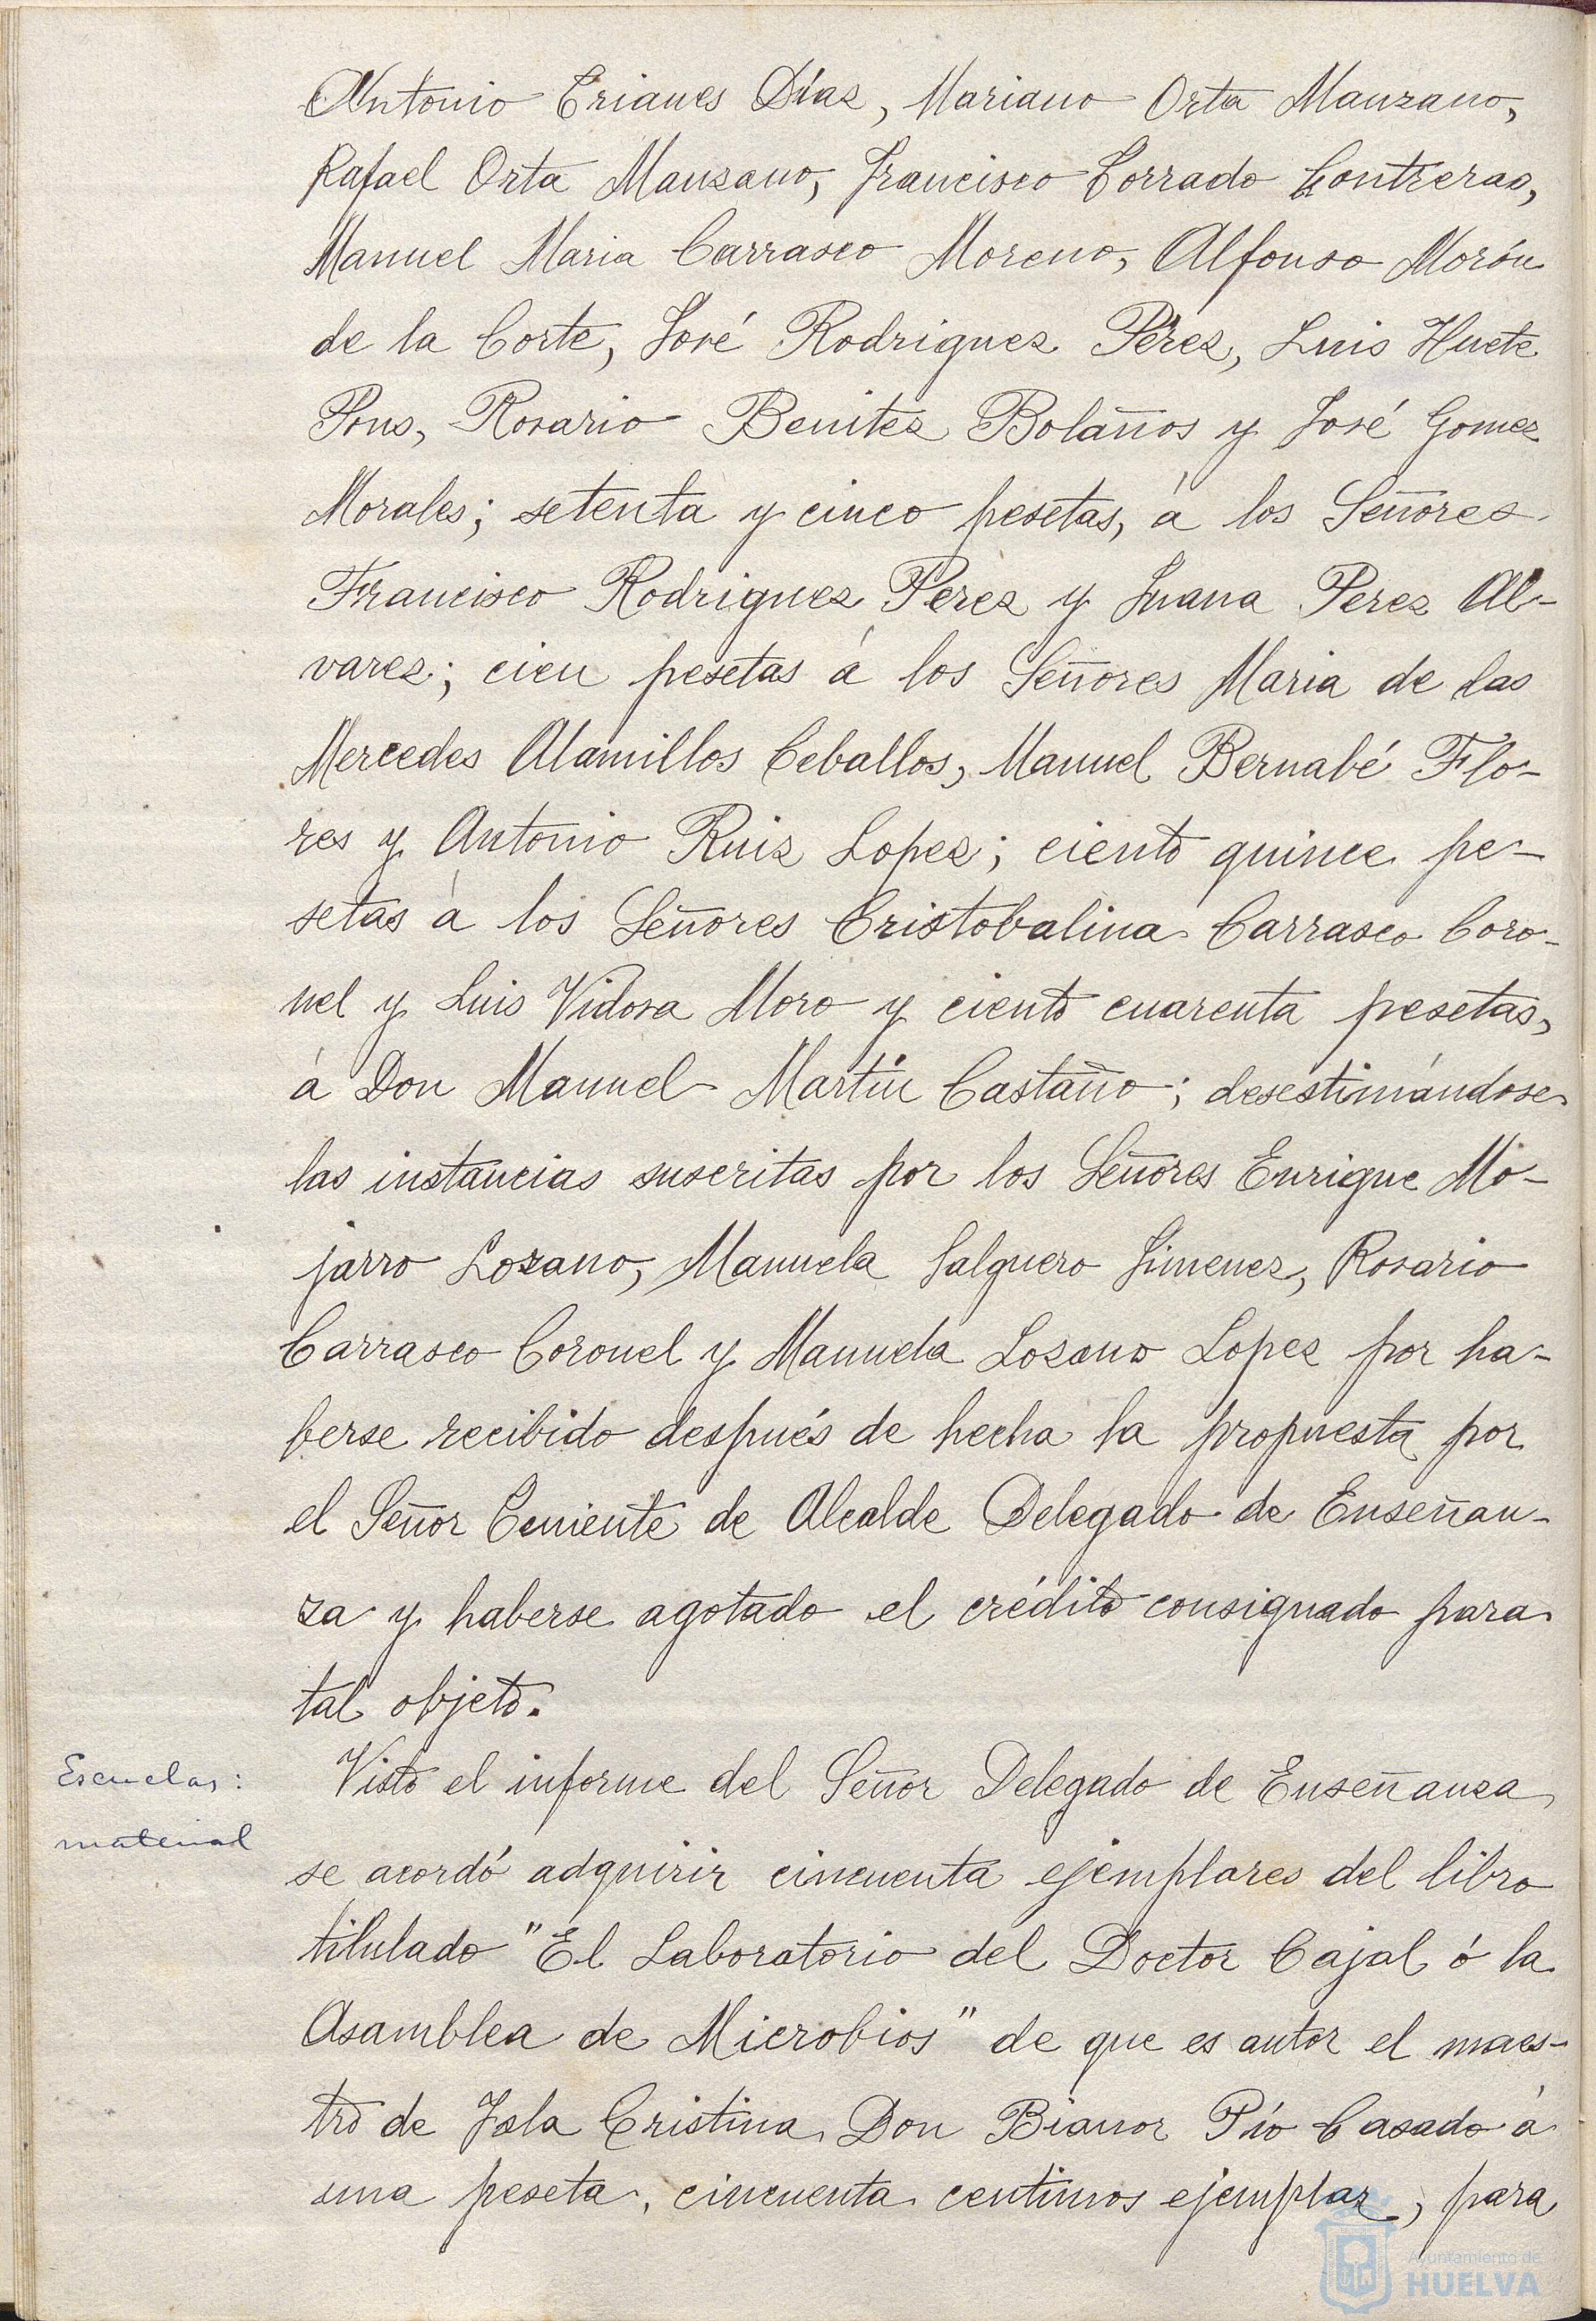 Antonio Trianes Díaz, Mariano Orta Manzano,
Rafael Orta Manzano, Francisco Torrado Contreras,
Manuel Maria Carrasco Moreno, Alfonso Morón
de la Corte, José Rodriguez Pérez, Luis Huete
Pons, Rosario Benitez Bolaños y José Gomez
Morales; setenta y cinco pesetas, á los Señores
Francisco Rodriguez Perez y Juana Perez Al-
varez; cien pesetas á los Señores Maria de las
Mercedes Alamillos Ceballos, Manuel Bernabé Flo-
res y Antonio Ruiz Lopez; ciento quince pe-
setas á los Señores Cristobalina Carrasco Coro-
nel y Luis Vidosa Moro y ciento cuarenta pesetas,
á Don Manuel Martin Castaño; desestimándose
las instancias suscritas por los Señores Enrique Mo-
jarro Lozano, Manuela Salguero Jimenez, Rosario
Carrasco Coronel y Manuela Lozano Lopez por ha-
berse recibido después de hecha la propuesta por
el Señor Teniente de Alcalde Delegado de Enseñan-
za y haberse agotado el crédito consignado para
tal objeto.
Escuelas:
material
Visto el informe del Señor Delegado de Enseñanza
se acordó adquirir cincuenta ejemplares del libro
titulado "El Laboratorio del Doctor Cajal ó la
Asamblea de Microbios" de que es autor el maes-
tro de Isla Cristina Don Bianor Pío Casado á
una peseta, cincuenta centimos ejemplar, para
Ayuntamiento de
HUELVA